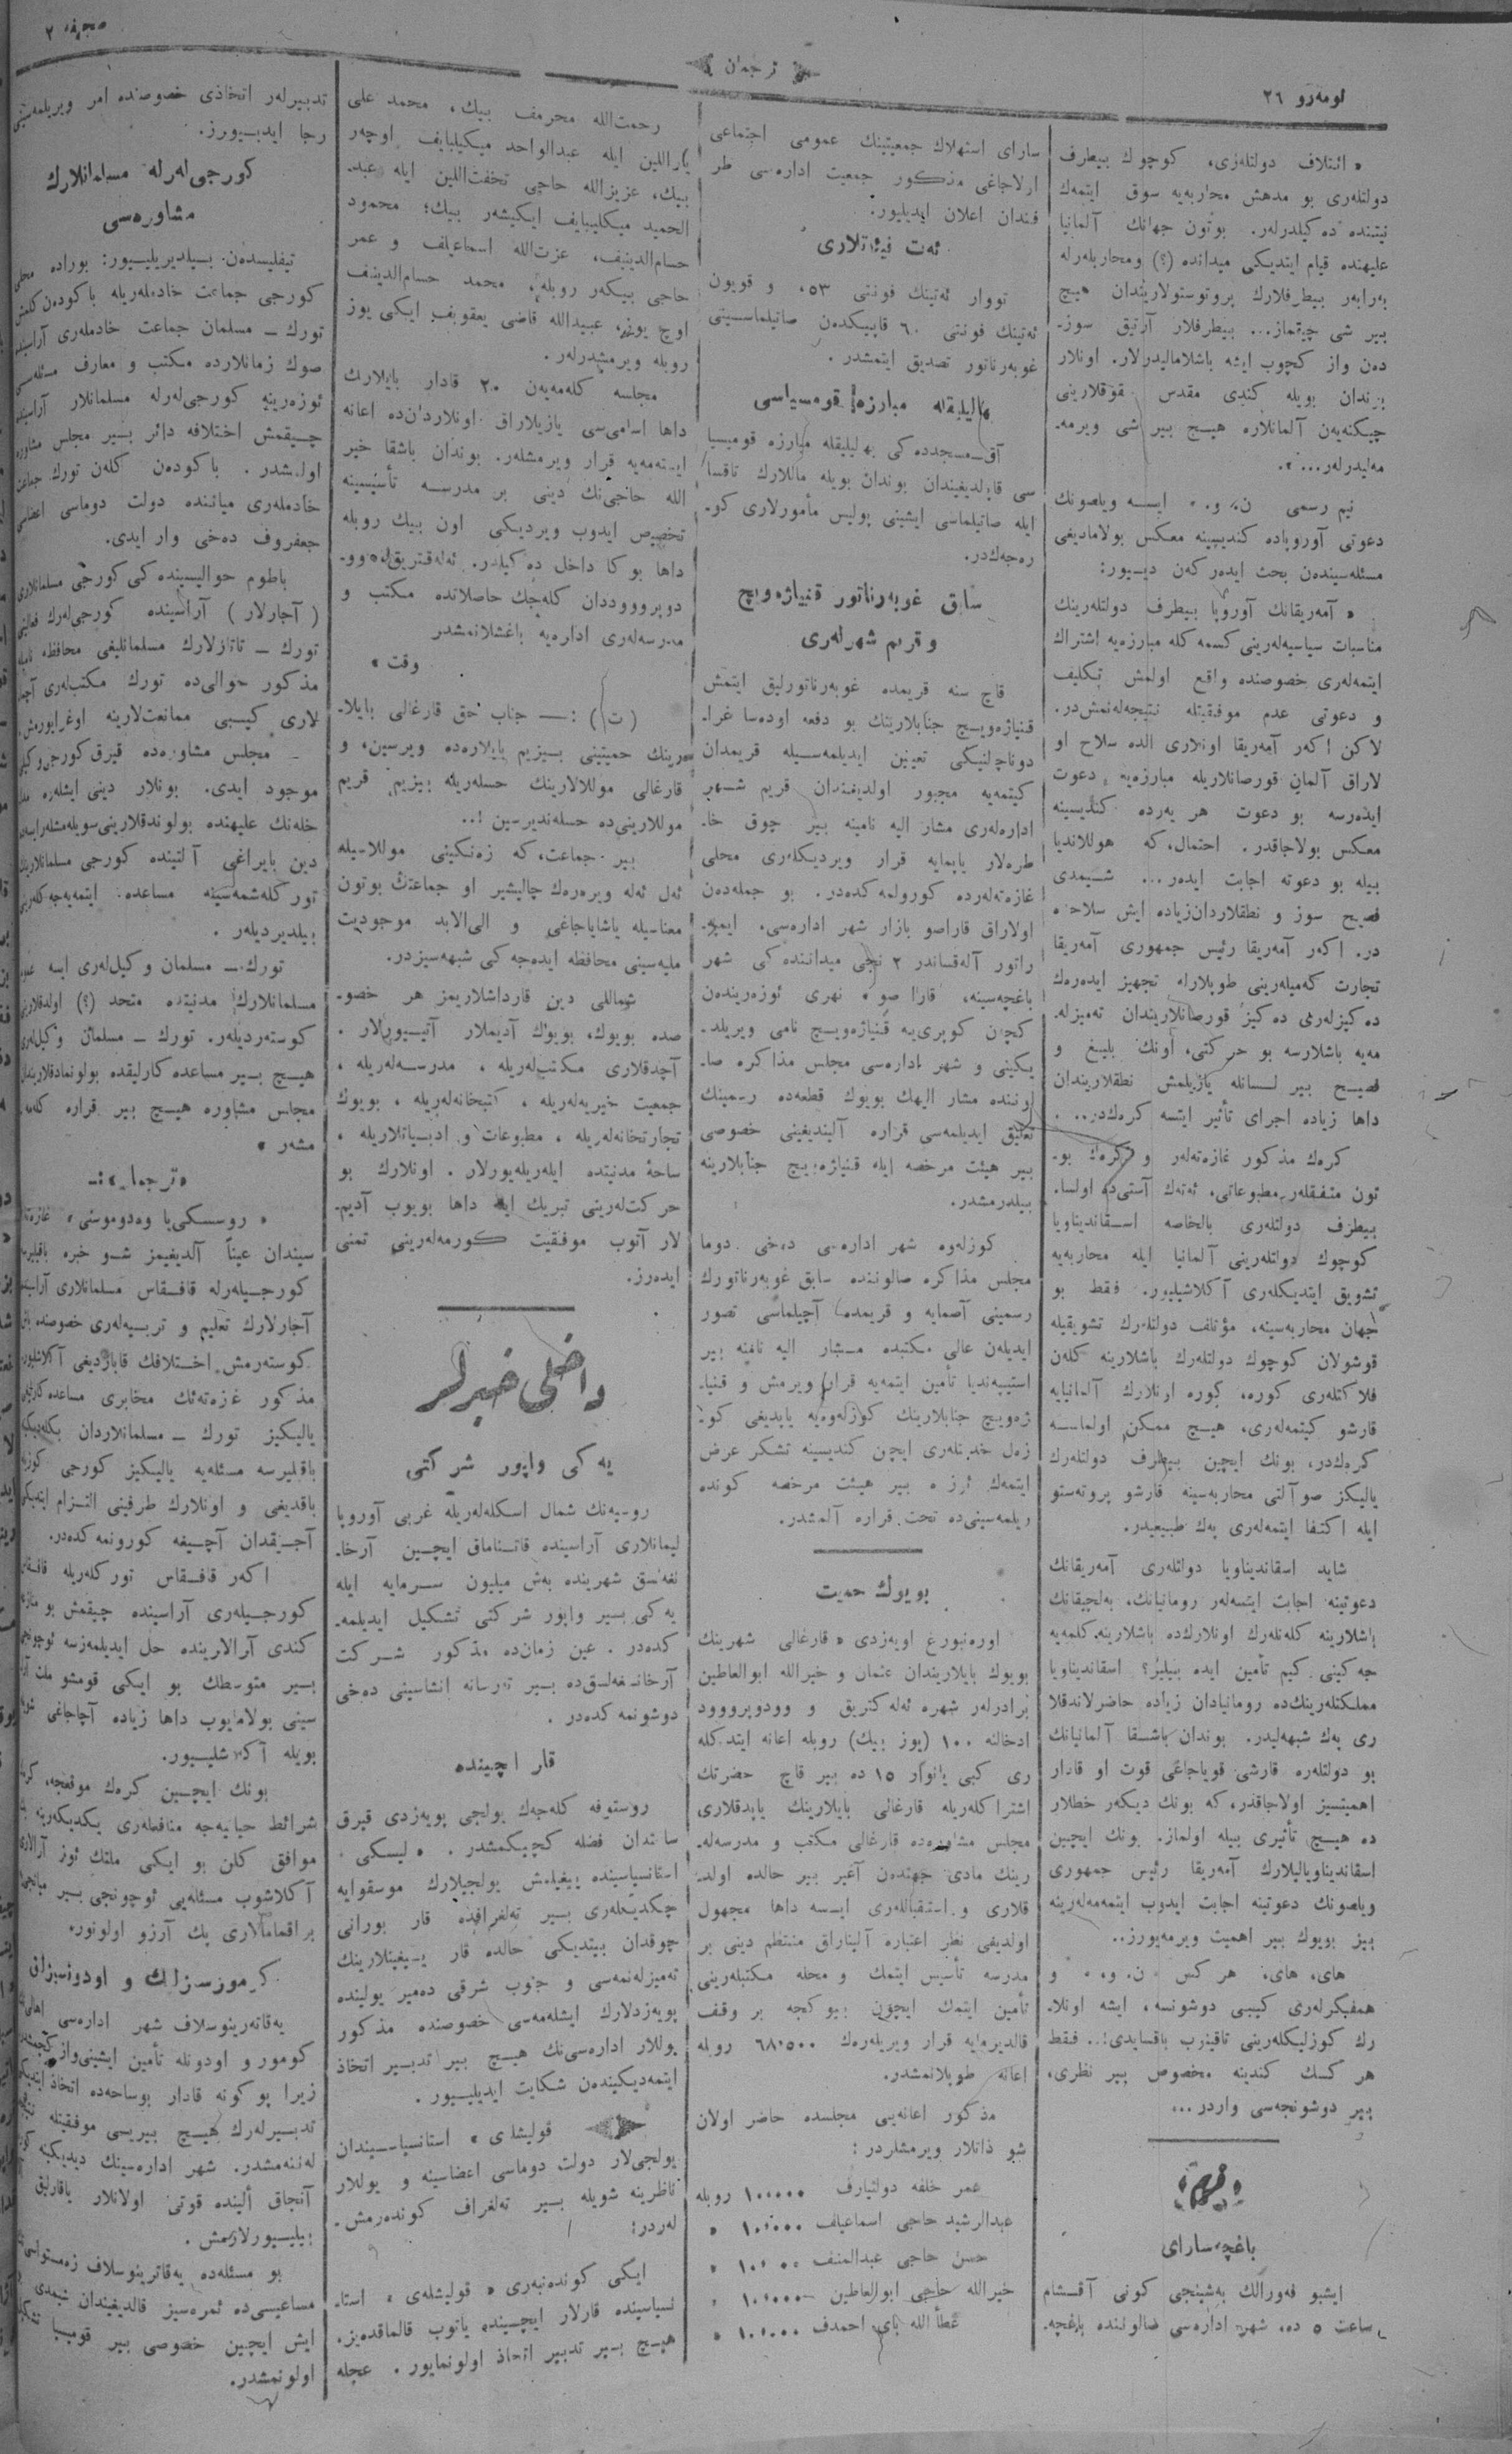 نومەرو ٢٦
ترجمان
صحیفه ٢
« ائتلاف دولتلەری، كوچوك بیطرف
دولتلەری بو مدهش محاربەیە سوق ایتمەك
نیتندە دەكیلدرلەر. بوتون جهانك آلمانیا
علیهندە قیام ایتدیكی میداندە (؟) ومحاربلەرلە
بەرابەر بیطرفلارك پروتوستولارندان هیچ
بیر شی چیقماز... بیطرفلار آرتیق سوز-
دەن واز كچوب ایشە باشلامالیدرلار. اونلار
چیكنەیەن آلمانلارە هیچ بیر شی ویرمە-
مەلیدرلەر...».
نیم رسمی «ن. و.» ایسە ویلصونك
دعوتی آوروپادە كندیسینە معكس بولامادیغی
مسئلەسیندەن بحث ایدەركەن دییور:
« آمەریقانك آوروپا بیطرف دولتلەرینك
مناسبات سیاسیەلەرینی كسمەكلە مبارزەیە اشتراك
ایتمەلەری خصوصندە واقع اولمش تكلیف
و دعوتی عدم موفقیتلە نتیجەلەنمش در.
لاكن اكەر آمەریقا اونلاری الدە سلاح او
لاراق آلمان قورصانلاریلە مبارزەیە دعوت
ایدەرسە بو دعوت هر یەردە كندیسینە
معكس بولاجاقدر. احتمال، كە هوللاندیا
بیلە بو دعوتە اجابت ایدەر... شیمدی
فصیح سوز و نطقلاردان زیادە ایش سلاحدە
در. اكەر آمەریقا رئیس جمهوری آمەریقا
تجارت كەمیلەرینی طوپلارلە تجهیز ایدەرەك
دەكیزلەری دەكیز قورصانلاریندان تەمیزلە-
مەیە باشلارسە بو حركتی، اونك بلیغ و
فصیح بیر لسانلە یازیلمش نطقلاریندان
داها زیادە اجرای تأثیر ایتسە كرەكدر...
كرەك مذكور غازەتەلەر و كرەك بو-
تون متفقلەر مطبوعاتی، ئەتەك آستی دە اولسا-
بیطرف دولتلەری بالخاصە اسقاندیناویا
كوچوك دولتلەرینی آلمانیا ایلە محاربەیە
تشویق ایتدیكلەری آكلاشیلیور. فقط بو
جهان محاربەسینە، مؤتلف دولتلەرك تشویقیلە
قوشولان كوچوك دولتلەرك باشلارینە كلەن
فلاكتلەری كورە، كورە اونلارك آلمانیایە
قارشو كیتمەلەری، هیچ ممكن اولماسە
كرەكدر، بونك ایچین بیطرف دولتلەرك
یالیكز صو آلتی محاربەسینە قارشو پروتەستو
ایلە اكتفا ایتمەلەری پەك طبیعیدر.
شاید اسقاندیناویا دولتلەری آمەریقانك
دعوتینە اجابت ایتسەلەر رومانیانك، بەلجیقانك
باشلارینە كلەنلەرك اونلارك دە باشلارینە كلمەیە
جەكینی كیم تأمین ایدە بیلیر؟ اسقاندیناویا
مملكتلەرینك دە رومانیادان زیادە حاضرلاندقلا
ری پەك شبهەلیدر. بوندان باشقا آلمانیانك
بو دولتلەرە قارشی قویاجاغی قوت او قادار
اهمیتسیز اولاجاقدر، كە بونك دیكەر خطلار
دە هیچ تأثیری بیلە اولماز. بونك ایچین
اسقاندیناویالیلارك آمەریقا رئیس جمهوری
ویلصونك دعوتینە اجابت ایدوب ایتمەمەلەرینە
بیز بویوك بیر اهمیت ویرمەیورز..
های، های، هر كس «ن. و.» و
همفكرلەری كیبی دوشونسە، ایشە اونلا-
رك كوزلیكلەرینی تاقینوب باقسایدی!.. فقط
هر كسك كندینە مخصوص بیر نظری،
بیر دوشونجەسی واردر...
قریم
باغچەسارای
ایشبو فەورالك بەشینجی كونی آقشام
ساعت ٥ دە، شهر ادارەسی صالوننده باغچە-
سارای استهلاك جمعیتینك عمومی اجتماعی
اولاجاغی مذكور جمعیت ادارەسی طر
فندان اعلان ایدیلیور.
ئەت فیئاتلاری
تووار ئەتینك فونتی ٥٣، و قویون
ئەتینك فونتی ٦٠ قاپیكدەن صاتیلماسینی
غوبەرناتور تصدیق ایتمشدر.
بهالیلیقلە مبارزە قومسیاسی
آق-مسجددەكی بهالیلیقلە مبارزە قومیسیا
سی قاپادیغیندان بوندان بویلە ماللارك تاقسا
ایلە صاتیلماسی ایشینی پولیس مأمورلاری كو-
رەجەكدر.
سابق غوبەرناتور قنیاژەویچ
و قریم شهرلەری
قاچ سنە قریمدە غوبەرناتورلیق ایتمش
قنیاژەویچ جنابلارینك بو دفعە اودەسا غرا-
دوناچلنیكی تعیین ایدیلمەسیلە قریمدان
كیتمەیە مجبور اولدیغندان قریم شهر
ادارەلەری مشار الیە نامینە بیر چوق خا-
طرەلار یاپمایە قرار ویردیكلەری محلی
غازەتەلەردە كورولمەكدەدر. بو جملەدەن
اولاراق قاراصو بازار شهر ادارەسی، ایمپە-
راتور آلەقساندر ٢ نجی میدانندەكی شهر
باغچەسینە، قارا صو» نهری ئوزەریندەن
كچن كوپری یە قنیاژەویچ نامی ویریلە-
یكینی و شهر ادارەسی مجلس مذاكرە صا-
لونندە مشار الیهك بویوك قطعەدە رسمینك
تعلیق ایدیلمەسی قرارە آلیندیغینی خصوصی
بیر هیئت مرخصە ایلە قنیاژەویچ جنابلارینە
بیلدرمشدر.
كوزلەوە شهر ادارەسی دەخی دوما
مجلس مذاكرە صالونندە سابق غوبەرناتورك
رسمینی آصمایە و قریمدە آچیلماسی تصور
ایدیلەن عالی مكتبدە مشار الیە نامنە بیر
استیپەندیا تأمین ایتمەیە قرار ویرمش و قنیا-
ژەویچ جنابلارینك كوزلەوەیە یاپدیغی كو-
زەل خدمتلەری ایچون كندیسینە تشكر عرض
ایتمەك ئوزرە بیر هیئت مرخصە كوندە
ریلمەسینی دە تحت قرارە آلمشدر.
بویوك حمیت
اورەنبورغ اویەزدی « قارغالی شهرینك
بویوك بایلاریندان عثمان و خیرالله ابوالعاطین
برادرلەر شهرە ئەلەكتریق و وودوپرووود
ادخالنە ١٠٠ (یوز بیك) روبلە اعانە ایتدكلە
ری كبی یانوار ١٥ دە بیر قاچ حضرتك
اشتراكلەریلە قارغالی بایلارینك یاپدقلاری
مجلس مشاورەدە قارغالی مكتب و مدرسەلە-
رینك مادی جهتدەن آغیر بیر حالدە اولد-
قلاری و استقباللەری ایسە داها مجهول
اولدیغی نظر اعتبارە آلیناراق منتظم دینی بر
مدرسە تأسیس ایتمك و محلە مكتبلەرینی
تأمین ایتمك ایچون بیوكجە بر وقف
قالدیرمایە قرار ویریلەرەك ٦٨،٥٠٠ روبلە
اعانە طوپلانمشدر.
مذكور اعانەیی مجلسدە حاضر اولان
شو ذاتلار ویرمشلردر:
عمر خلفە دولتیارف ١٠،٠٠٠ روبلە
عبدالرشید حاجی اسماعیلف ١٠،٠٠٠ »
حسن حاجی عبدالمنف ١٠،٠٠٠ »
خیرالله حاجی ابوالعاطین ١٠،٠٠٠ »
عطأ الله بای احمدف ١٠،٠٠٠ »
رحمت الله محرمف بیك، محمد علی
یارالاین ایلە عبدالواحد میكیلیایف اوچەر
بیك، عزیزالله حاجی تخفت اللین ایلە عبد-
الحمید میكلیبایف ایكیشەر بیك؛ محمود
حسام الدینف، عزت الله اسماعیلف و عمر
حاجی بیكەر روبلە، محمد حسام الدینف
اوچ یوز، عبیدالله قاضی یعقوبف ایكی یوز
روبلە ویرمشدرلەر.
مجلسە كلەمەیەن ٢٠ قادار بایلارك
داها اسامی سی یازیلاراق اونلاردن دە اعانە
ایستەمەیە قرار ویرمشلەر. بوندان باشقا خیر
الله حاجی نك دینی بر مدرسە تأسیسینە
تخصیص ایدوب ویردیكی اون بیك روبلە
داها بوكا داخل دەكیلدر. ئەلەقتریق لە وو-
دوپروووددان كلەجك حاصلاتدە مكتب و
مدرسەلەری ادارەیە باغشلانمشدر
وقت »
(ت) : — جناب حق قارغالی بایلا-
رینك حمیتینی بیزیم بایلارەدە ویرسین، و
قارغالی موللالارینك حسلەریلە بیزیم قریم
موللارینی دە حسلەندیرسین!..
بیر جماعت، كە زەنكینی موللاسیلە
ئەل ئەلە ویرەرەك چالیشیر او جماعتك بوتون
معناسیلە یاشایاجاغی و الی الابد موجودیت
ملیەسینی محافظە ایدەجەكی شبهەسیزدر.
شماللی دین قارداشلاریمز هر خصو-
صدە بویوك، بویوك آدیملار آتییورلار.
آچدقلاری مكتبلەریلە، مدرسەلەریلە،
جمعیت خیریەلەریلە، كتبخانەلەریلە، بویوك
تجارتخانەلەریلە، مطبوعات و ادبیاتلاریلە،
ساحهٔ مدنیتدە ایلەریلەیورلار. اونلارك بو
حركتلەرینی تبریك ایلە داها بویوب آدیم-
لار آتوب موفقیت كورمەلەرینی تمنی
ایدەرز.
داخلی خبرلر
یەكی واپور شركتی
روسیەنك شمال اسكلەلەریلە غربی آوروپا
لیمانلاری آراسیندە قاتناماق ایچین آرخا-
نغەلسق شهریندە بەش میلیون سرمایە ایلە
یەكی بیر واپور شركتی تشكیل ایدیلمە-
كدەدر. عین زمان دە مذكور شركت
آرخانغەلسق دە بیر ترسانە انشاسینی دەخی
دوشونمەكدەدر.
قار ایچیندە
روستوفە كلەجەك یولجی پویەزدی قیرق
ساعتدان فضلە كچیكمشدر. «لیسكی»
استانسیاسیندە ییغیلمش یولجیلارك موسقوایە
چكدیكلەری بیر تەلغرافدە قار بورانی
چوقدان بیتدیكی حالدە قار ییغینلارینك
تەمیزلەنمەسی و جنوب شرقی دەمیر یولیندە
پویەزدلارك ایشلەمەسی خصوصندە مذكور
یوللار ادارەسی نك هیچ بیر تدبیر اتخاذ
ایتمەدیكیندەن شكایت ایدیلیور.
قولیشلەی » استانسیاسیندان
یولجی لار دولت دوماسی اعضاسینە و یوللار
ناظرینە شویلە بیر تەلغراف كوندەرمش-
لەردر:
ایكی كوندەنبەری « قولیشلەی » استا-
نسیاسیندە قارلار ایچیندە یاتوب قالماقدەیز.
هیچ بیر تدبیر اتخاذ اولونمایور. عجلە
تدبیرلەر اتخاذی خصوصندە امر ویریلمەسینی
رجا ایدییورز.
كورجی لەرلە مسلمانلارك
مشاورەسی
تیفلیسدەن بیلدیریلییور: بورادە محلی
كورجی جماعت خادملەریلە باكودەن كلمش
تورك – مسلمان جماعت خادملەری آراسیندە
صوك زمانلاردە مكتب و معارف مسئلەسی
ئوزەرینە كورجی لەرلە مسلمانلار آراسیندە
چیقمش اختلافە دائر بیر مجلس مشاورە
اولمشدر. باكودەن كلەن تورك جماعت
خادملەری میاننده دولت دوماسی اعضاسی
جعفروف دەخی وار ایدی.
باطوم حوالیسیندەكی كورجی مسلمانلاری
(آجارلار) آراسیندە كورجی لەرك فعالیتی
تورك – تاتارلارك مسلمانلیغی محافظە نامیلە
مذكور حوالی دە تورك مكتبلەری آچما
لاری كیبی ممانعت لارینە اوغرایورمش.
مجلس مشاورەدە قیرق كورجی وكیلی
موجود ایدی. بونلار دینی ایشلەرە مدا
خلەنك علیهندە بولوندقلارینی سویلەمشلەرایسەدە
دین بایراغی آلتیندە كورجی مسلمانلارینك
تورككلەشمەسینە مساعدە ایتمەیەجەكلەرینی
بیلدیردیلەر.
تورك – مسلمان وكیل لەری ایسە عموم
مسلمانلارك مدنیتدە متحد (؟) اولدقلارینی
كوستەردیلەر. تورك – مسلمان وكیل لەری
هیچ بیر مساعدەكارلیقدە بولونمادقلاریندان
مجلس مشاورە هیچ بیر قرارە كلەمە
مشدر »
« ترجمان » :–
« روسسكی یا وەدوموستی » غازەتە
سیندان عیناً آلدیغیمز شو خبرە باقیلیرسە
كورجیلەرلە قافقاس مسلمانلاری آراسیندە
آجارلارك تعلیم و تربیەلەری خصوصندە باش
كوستەرمش اختلافك قاباردیغی آكلاشلیور.
مذكور غزەتەنك مخابری مساعدەكارلیغی
یالیكیز تورك – مسلمانلاردان بكلەدیكینە
باقلیرسە مسئلەیە یالیكیز كورجی كوزیلە
باقدیغی و اونلارك طرفینی التزام ایتدیكی
آچیقدان آچیغە كورونمەكدەدر.
اكەر قافقاس توركلەریلە قافقاس
كورجیلەری آراسیندە چیقمش بو منازعە
كندی آرالاریندە حل ایدیلمەزسە ئوچونجی
بیر متوسطك بو ایكی قومشو ملت آرا
سینی بولامایوب داها زیادە آچاجاغی شو
بویلە آكلاشلییور.
بونك ایچین كرەك موقعجە، كرەك
شرائط حیاتیەجە منافعلەری یكدیكەرینە پك
موافق كلن بو ایكی ملتك ئوز آرالاری
آكلاشوب مسئلەیی ئوچونجی بیر میانجی
براقمامالاری پك آرزو اولونور.
كیموزسزلك و اودونسیزلق
یەقاتەرینوسلاف شهر ادارەسی اهالی نك
كومور و اودونلە تأمین ایشینی واز كچمشدر
زیرا بو كونە قادار بوساحەدە اتخاذ ایتدیكی
تدبیرلەرك هیچ بیریسی موفقیتلە نتیجە
لەننەمشدر. شهر ادارەسینك دیدیكینە كورە
آنجاق ألیندە قوتی اولانلار یاقارلیق
بیلییورلارمش.
بو مسئلەدە یەقاترینوسلاف زەمستواسی نك
مساعیسی دە ثمرەسیز قالدیغیندان شیمدی بو
ایش ایچین خصوصی بیر قومیسیا تشكیل
اولونمشدر.